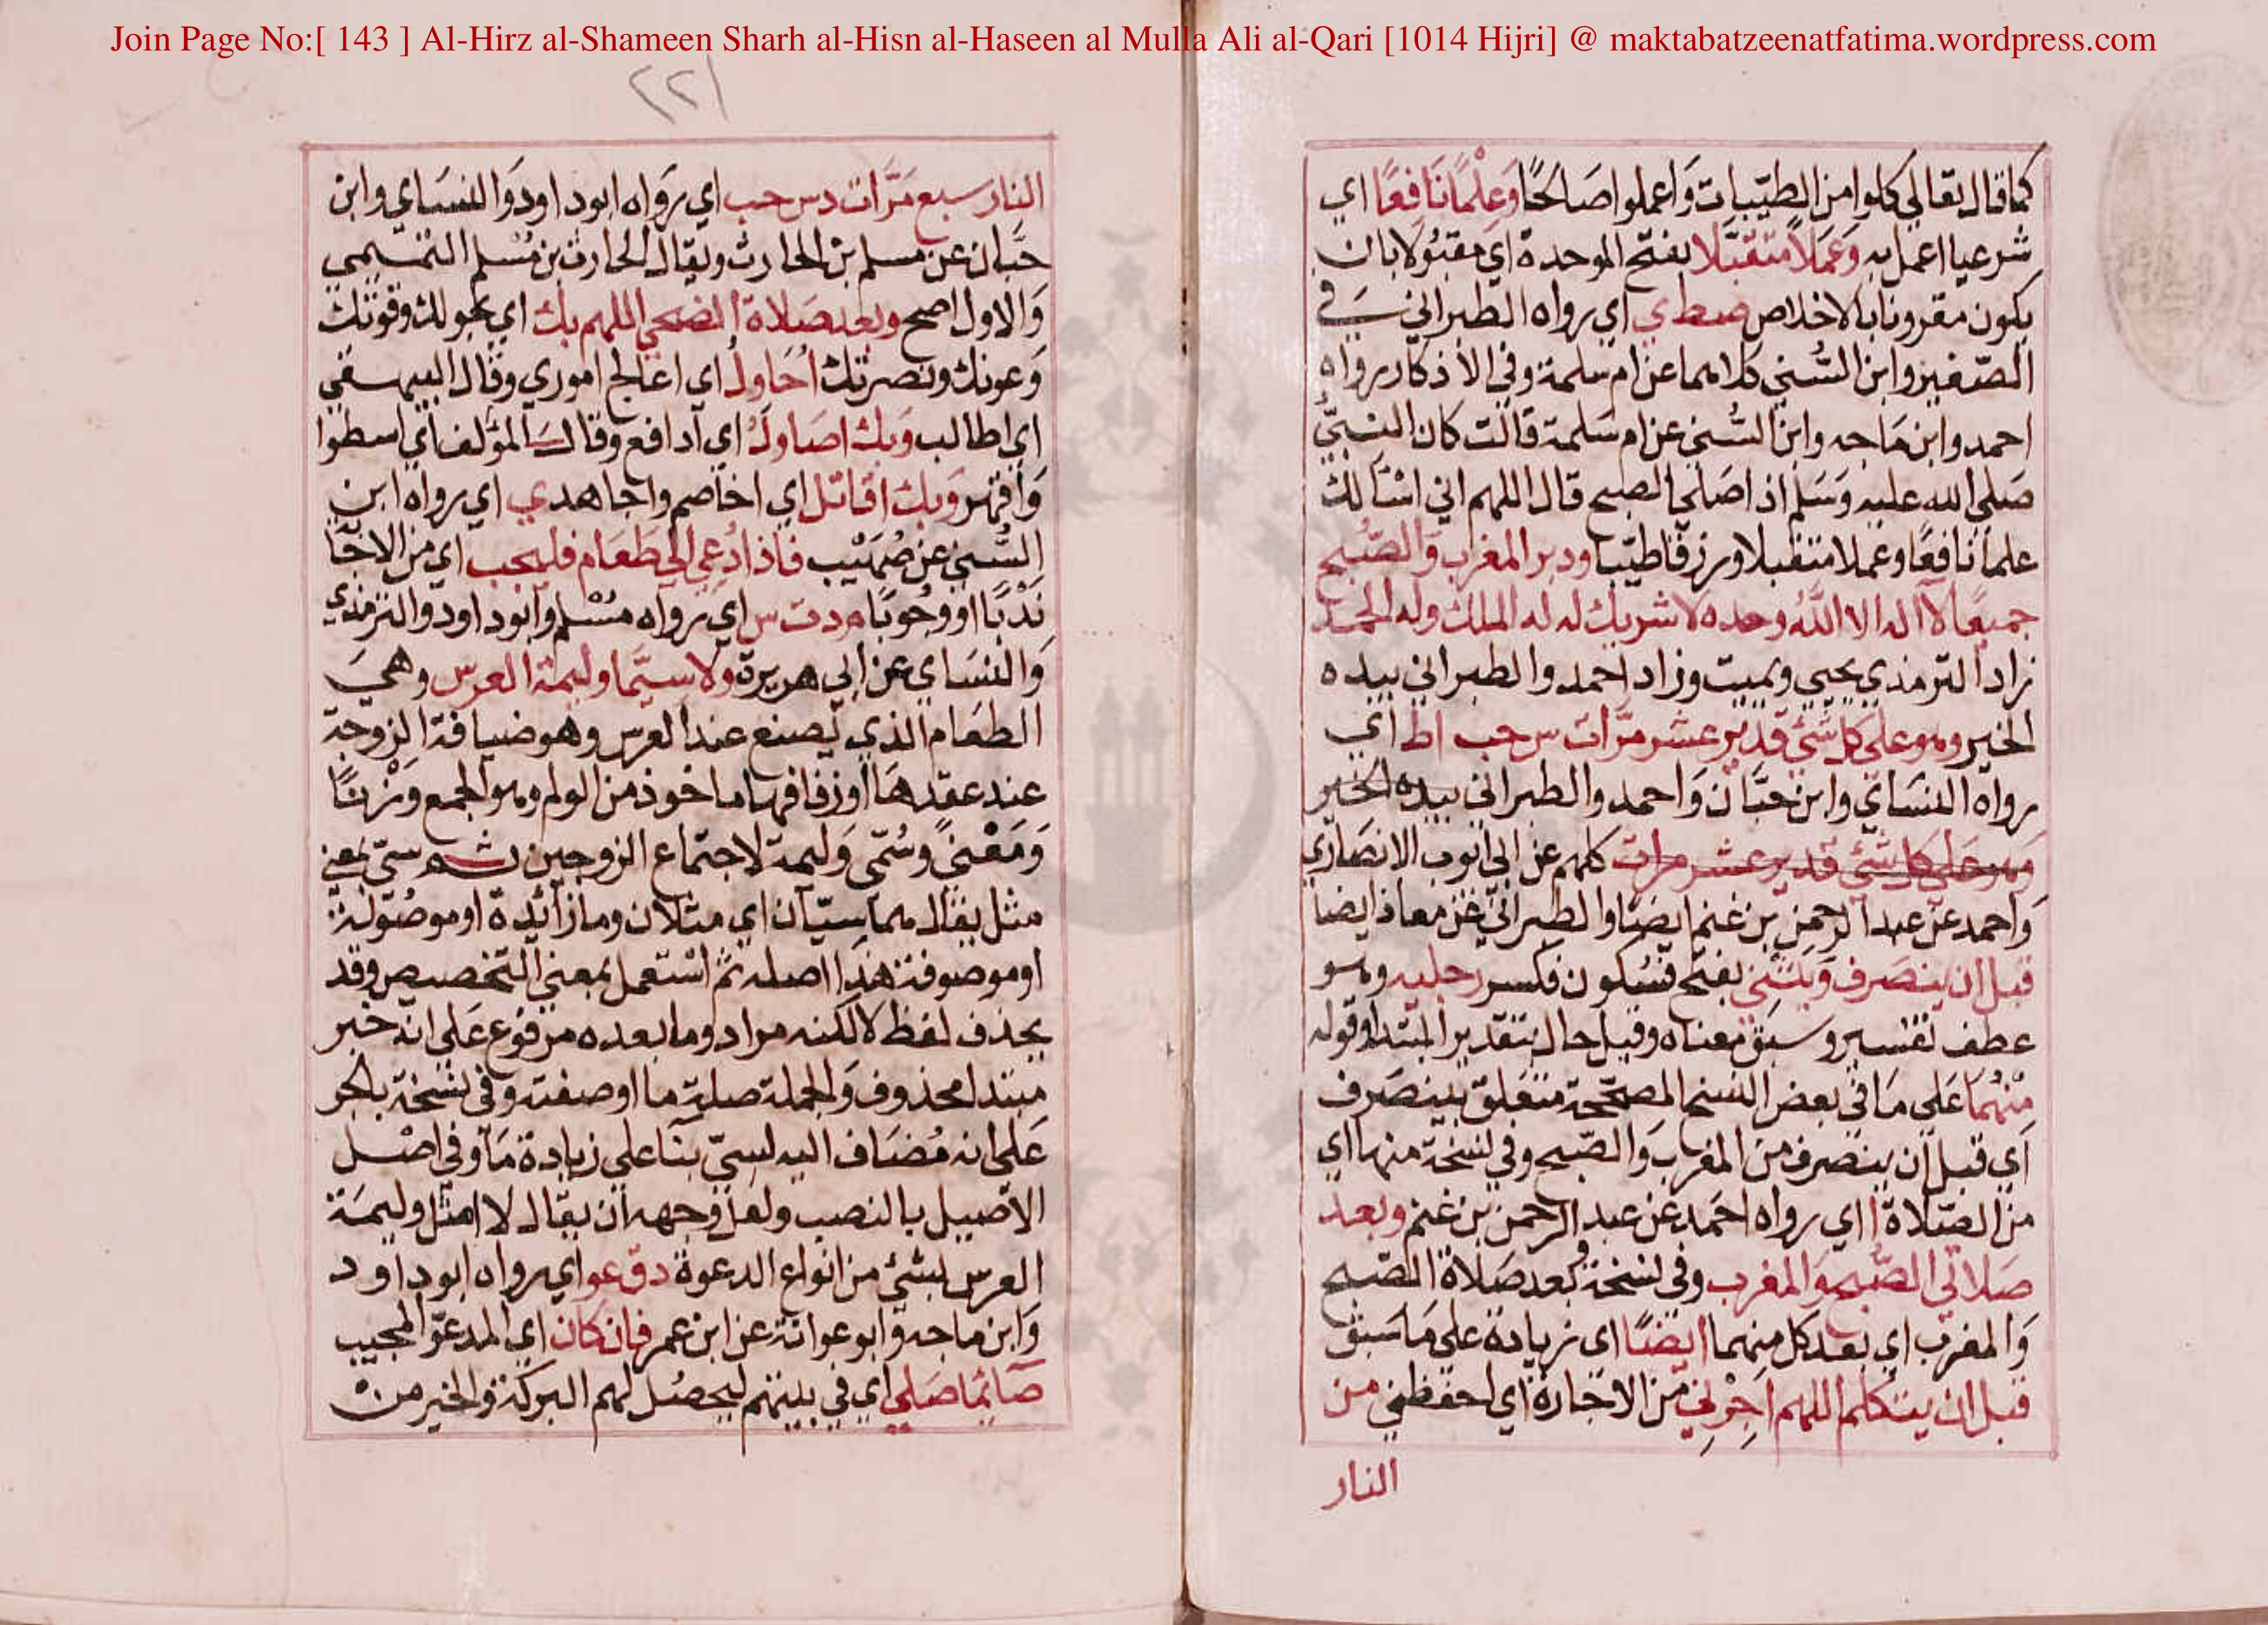 Join Page No:[ 143 ] Al-Hirz al-Shameen Sharh al-Hisn al-Haseen al Mulla Ali al-Qari [1014 Hijri] @ maktabatzeenatfatima.wordpress.com
كما قال تعالي كلوا من الطيّبات وَاعملوا صَالحًا وَعِلْمًا نَافِعًا اي
شرعيا اعمل به وَعَمَلاً متقبَّلا بفتح الموحدة اي مقبُولا بان
يكون مقرونا بالاخلاص صط ي اي رواه الطبراني في
الصّغير وابن السُّني كلاهما عن ام سلمة وفي الأذكار رواه
احمد وابن مَاجه وابن السُّني عن ام سَلمة قالت كان النبيّ
صَلي الله عليه وَسَلم اذا صَلي الصبح قال اللهم اني اسْألك
علما نافعًا وعملا متقبلا ورزقا طيّبا ودبر المغرب وَالصّبح
جميعًا لا اله الا اللّهُ وحده لا شريك له له الملك وله الحمد
زاد الترمذي يحيي ويميت وزاد احمد والطبراني بيده
الخير وهو علي كل شئ قدير عشر مرّات س حب ا ط اي
رواه النسَاي وابن حبَّان وَاحمد والطبراني بيده الخير
وهو علي كل شئ قدير عشر مرات كلهم عن ابي ايوب الانصَاري
وَاحمد عن عبد الرحمن بن غنم ايضا والطبراني عن معاذ ايضا
قبل ان ينصَرف وَيَثني بفتح فسُكون فكسر رجليه وهو
عطف تفسير وسبَق معناه وقيل حال بتقدير المبتدا وقوله
منْهُمَا عَلي مَا في بعض النسخ المصحّحة متعَلق بينصَرف
اي قبل ان ينصرف من المغرب وَالصّبح وفي نسخة منها اي
من الصّلاة ا اي رواه احمَد عن عبد الرحمن بن غنم وبعد
صَلاتي الصُّبح وَالمغرب وفي نسخة وبعد صَلاة الصّبح
وَالمغرب اي بعد كل منهما ايضًا اي زيادة علي مَا سَبق
قبل ان يتكلم اللهم اجِرْني من الاجَارة اي احفظني من
النار
٢٢١
النار سبع مَرَّات د س حب اي رَواه ابو داود وَالنسَاي وابن
حبَّان عن مسلم بن الحارث ويقال الحارث بن مُسْلم التميمي
وَالاول اصح وبعد صَلاة الضحي اللهم بك اي بحولك وقوتك
وَعونك ونصرتك اُحَاول اي اعالج اموري وقال البيهقي
اي اطالب وَبك اصَاول اي ادافع وقال المؤلف اي اسطوا
وَاقهر وَبك اقاتل اي اخاصم واجاهد ي اي رواه ابن
السُّني عن صُهَيْب فاذا دُعي الي طَعَام فليجب اي من الاجابة
نَدْبًا او وجُوبًا م د ت س اي رواه مسْلم وابو داود والترمذي
وَالنسَاي عن ابي هريرة ولا سيَّما وليمة العرس وهي
الطعَام الذي يصنع عند العرس وهو ضيافة الزوجة
عند عقدهَا او زفافها ماخوذ من الولم وهو الجمع وَزْنًا
وَمَعْنيً وَسُمّي وَليمة لاجتماع الزوجين ثم سيّ بمعني
مثل يقال هما سيّان اي مثلان وما زائدة او موصُولة
او موصوفة هذا اصله ثم اسْتعمل بمعني التخصيص وقد
يحذف لفظ لا لكنه مراد وما بعده مرفوع عَلي انه خبر
مبتدا محذوف وَالجملة صلة ما او صفته وفي نسخة بالجر
عَلي انه مُضَاف اليه لسيّ بنَا علي زيادة مَا وفي اصْل
الاصيل بالنصب ولعل وَجهه ان يقال لا امثل وليمَة
العرس بشئ من انواع الدعوة د ق عو اي رواه ابو داود
وَابن ماجه وَابو عوانة عن ابن عمر فان كان اي المدعوّ المجيب
صَائما صَلي اي في بيتهم ليحصُل لهم البركة والخير من